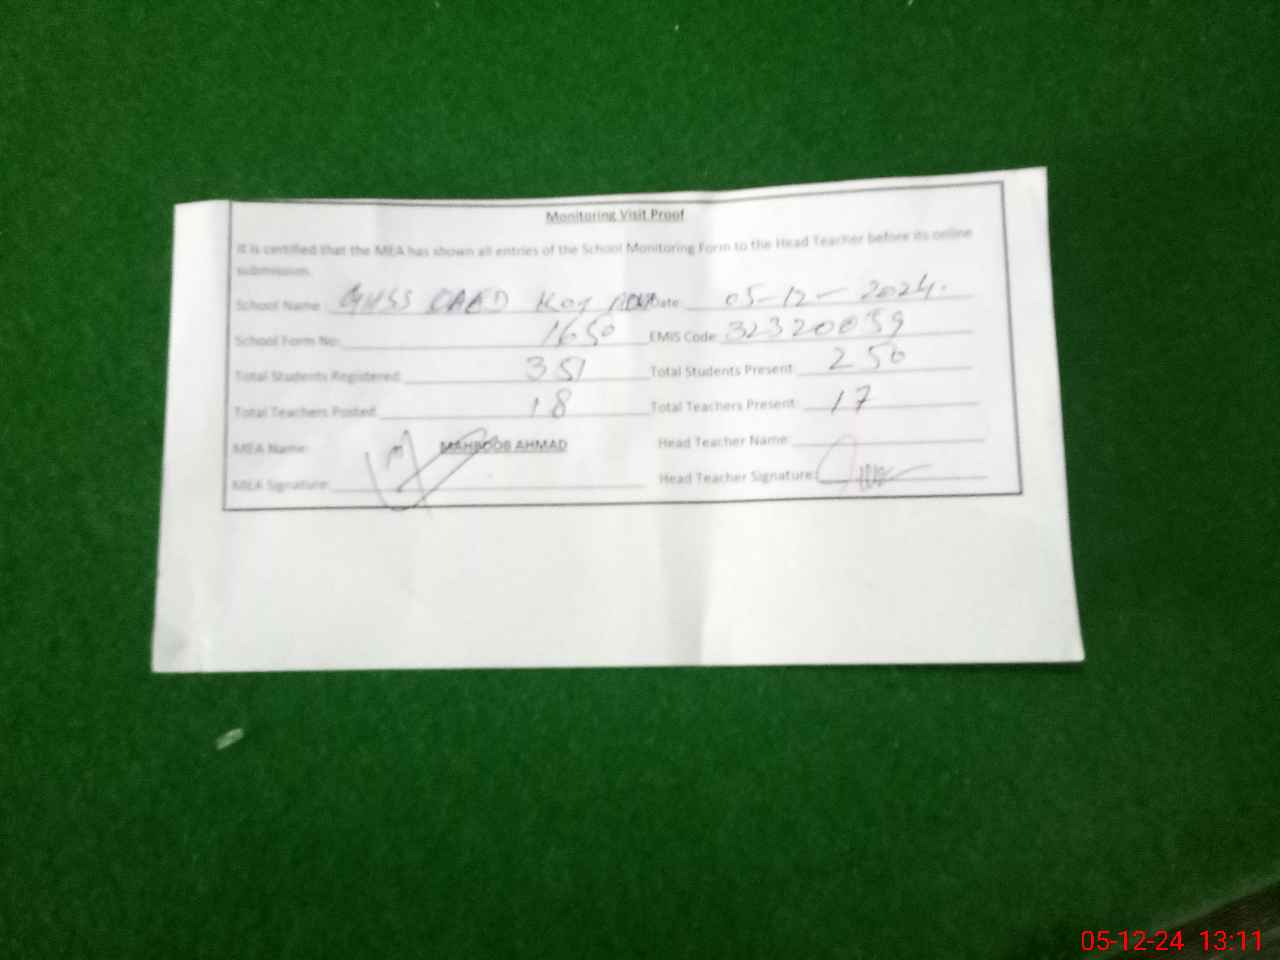 Monitoring Visit Proof
It is certified that the MEA has shown all entries of the School Monitoring Form to the Head Teacher before its online
submission.
School Name: GHSS Date: 05-12-2024.
School Form No: 1650 EMIS Code: 32320059
Total Students Registered: 351 Total Students Present: 250
Total Teachers Posted: 18 Total Teachers Present: 17
MEA Name: MAHBOOB AHMAD Head Teacher Name:
MEA Signature: Head Teacher Signature:
05-12-24 13:11